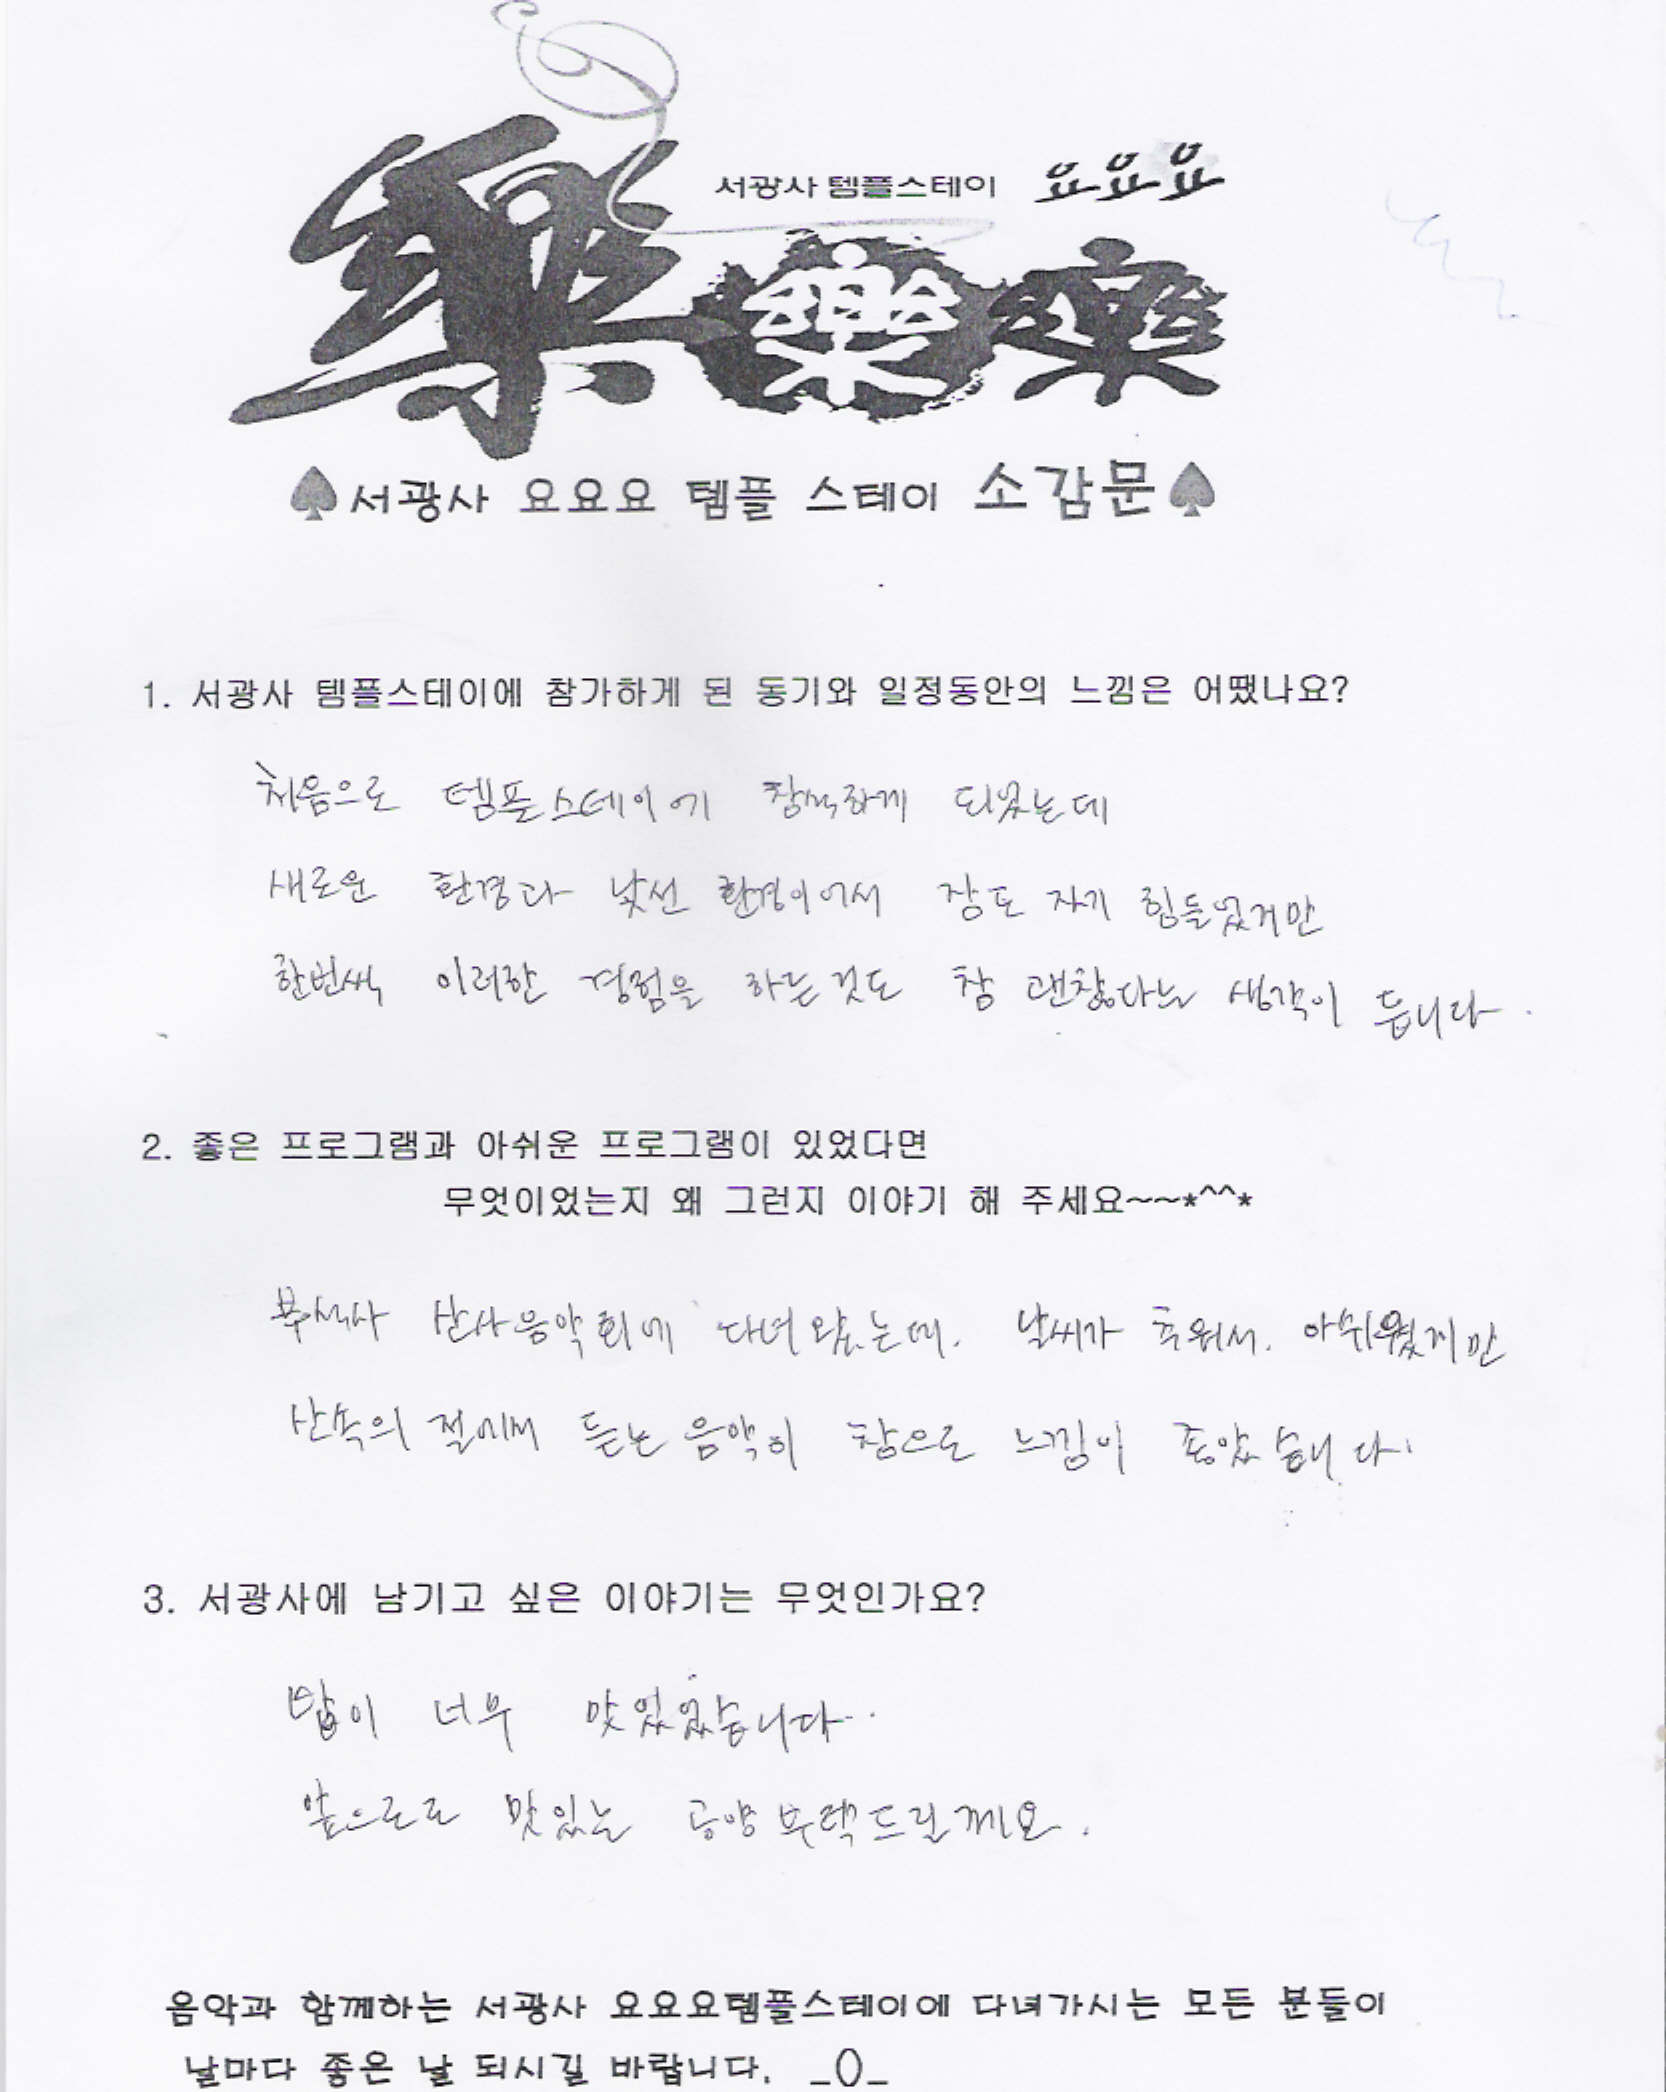 서광사 템플스테이 요요요
樂樂樂
♠서광사 요요요 템플 스테이 소감문♠
1. 서광사 템플스테이에 참가하게 된 동기와 일정동안의 느낌은 어땠나요?
처음으로 템플스테이에 참석하게 되었는데
새로운 환경과 낯선 환경이어서 잠도 자기 힘들었지만
한번씩 이러한 경험을 하는것도 참 괜찮다는 생각이 듭니다.
2. 좋은 프로그램과 아쉬운 프로그램이 있었다면
무엇이었는지 왜 그런지 이야기 해 주세요~~*^^*
부석사 산사음악회에 다녀왔는데. 날씨가 추워서. 아쉬웠지만
산속의 절에서 듣는 음악이 참으로 느낌이 좋았습니다.
3. 서광사에 남기고 싶은 이야기는 무엇인가요?
밥이 너무 맛있었습니다..
앞으로도 맛있는 공양 부탁드릴께요.
음악과 함께하는 서광사 요요요템플스테이에 다녀가시는 모든 분들이
날마다 좋은 날 되시길 바랍니다. _()_